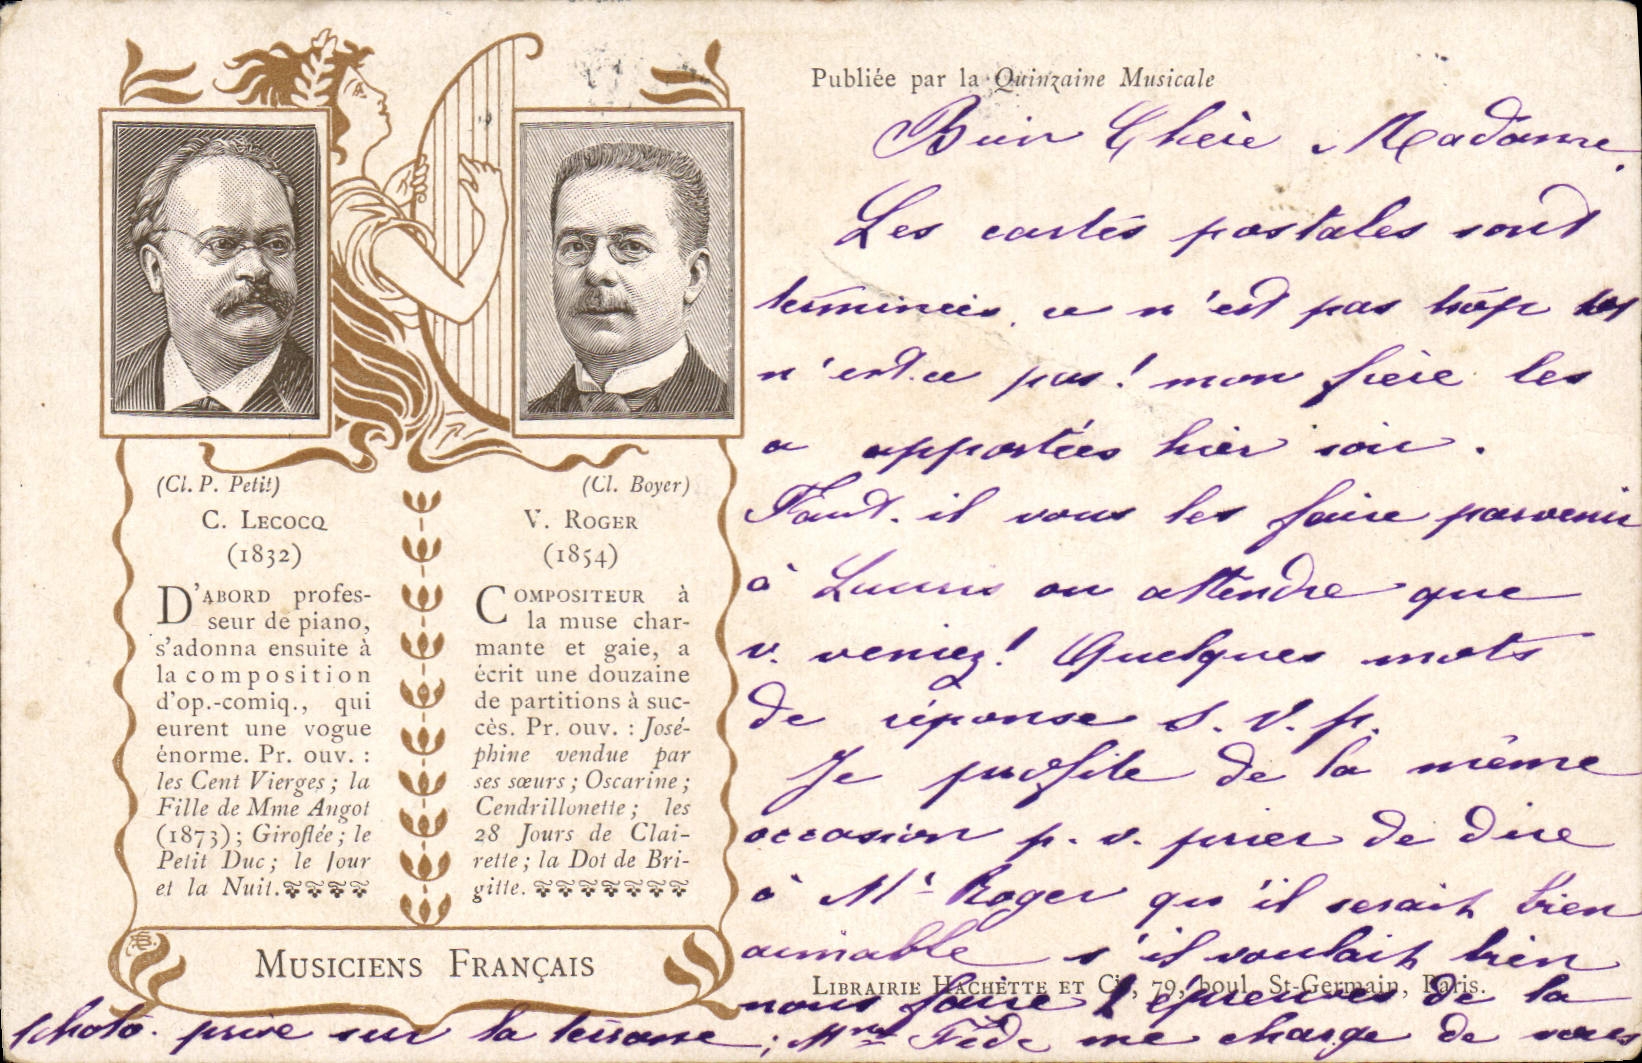 Publiée par la Quinzaine Musicale
(Cl. P. Petit)
C. LECOCQ
(1832)
D'ABORD profes-
seur de piano,
s'adonna ensuite à
la composition
d'op.-comiq., qui
eurent une vogue
énorme. Pr. ouv. :
les Cent Vierges ; la
Fille de Mme Angot
(1873) ; Giroflée ; le
Petit Duc ; le Jour
et la Nuit.
(Cl. Boyer)
V. ROGER
(1854)
COMPOSITEUR à
la muse char-
mante et gaie, a
écrit une douzaine
de partitions à suc-
cès. Pr. ouv. : José-
phine vendue par
ses sœurs ; Oscarine ;
Cendrillonette ; les
28 Jours de Clai-
rette ; la Dot de Bri-
gitte.
MUSICIENS FRANÇAIS
Bien Chère Madame.
Les cartes postales sont
terminées, ce n'est pas trop tôt
n'est-ce pas ! mon frère les
a apportées hier soir.
Faut-il vous les faire parvenir
à ou attendre que
v. veniez ! Quelques mots
de réponse s. v. p.
Je profite de la même
occasion p. v. prier de dire
à Mr Roger qu'il serait bien
aimable s'il voulait bien
nous faire épreuves de la
photo. prise sur la terrasse ; Mme Fédé me charge de vous
LIBRAIRIE HACHETTE ET Cie, 79, boul. St-Germain, Paris.